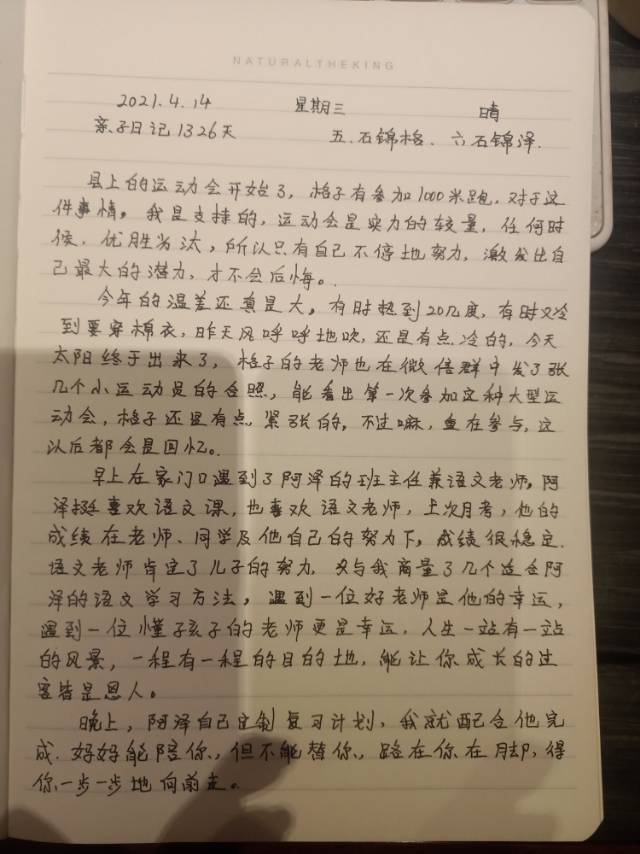 NATURALTHEKING
2021.4.14 星期三 晴
亲子日记1326天 五.石锦格、六石锦泽.
县上的运动会开始了,格子有参加1000米跑,对于这
件事情,我是支持的,运动会是实力的较量,任何时
候,优胜劣汰,所以只有自己不停地努力,激发出自
己最大的潜力,才不会后悔。
今年的温差还真是大,有时超到20几度,有时又冷
到要穿棉衣,昨天风呼呼地吹,还是有点冷的,今天
太阳终于出来了,格子的老师也在微信群中发了张
几个小运动员的合照,能看出第一次参加这种大型运
动会,格子还是有点紧张的,不过嘛,重在参与,这
以后都会是回忆。
早上在家门口遇到了阿泽的班主任兼语文老师,阿
泽挺喜欢语文课,也喜欢语文老师,上次月考,他的
成绩在老师、同学及他自己的努力下,成绩很稳定.
语文老师肯定了儿子的努力,又与我商量了几个适合阿
泽的语文学习方法,遇到一位好老师是他的幸运,
遇到一位懂孩子的老师更是幸运,人生一站有一站
的风景,一程有一程的目的地,能让你成长的过
客皆是恩人。
晚上,阿泽自己定制复习计划,我就配合他完
成.妈妈能陪你,但不能替你,路在你在脚,得
你一步一步地向前走。